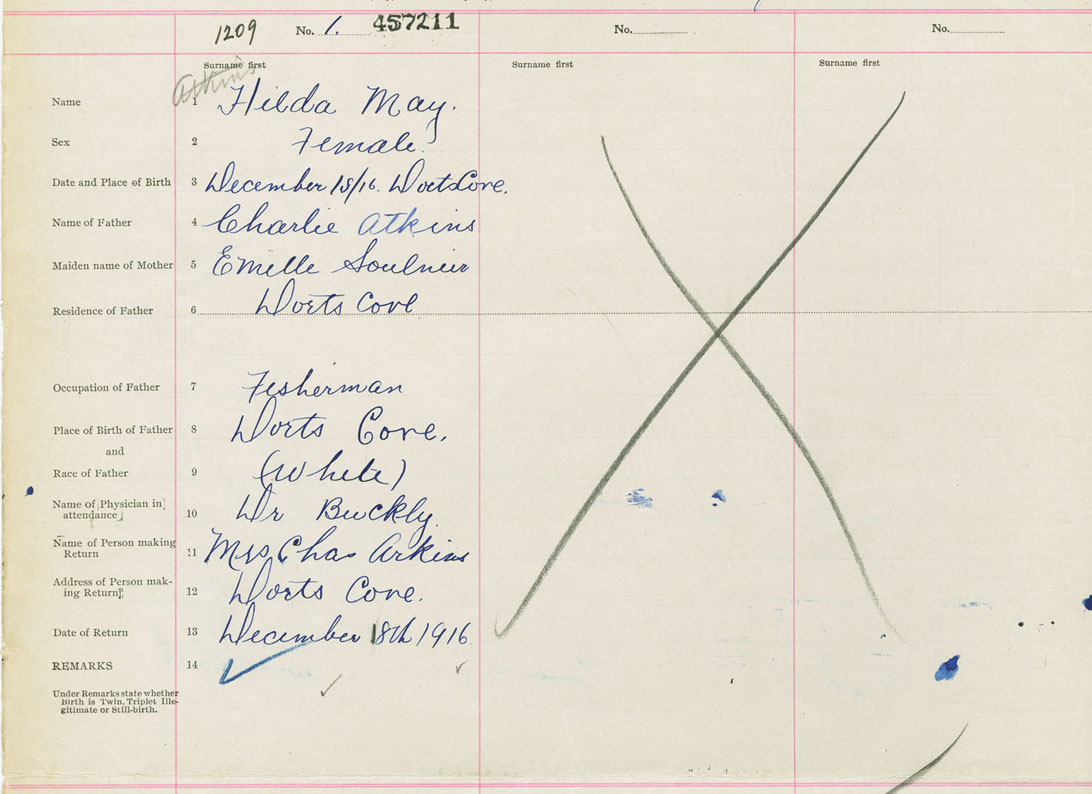 1209 No. 1. 457211 No. No.
Surname first Surname first Surname first
Atkins
Name 1 Hilda May.
Sex 2 Female.
Date and Place of Birth 3 December 18/16. Dorts Cove.
Name of Father 4 Charlie Atkins
Maiden name of Mother 5 Emille Soulnier
Residence of Father 6 Dorts Cove
Occupation of Father 7 Fisherman
Place of Birth of Father 8 Dorts Cove.
and
Race of Father 9 (White)
Name of Physician in
attendance 10 Dr Buckly.
Name of Person making
Return 11 Mrs Chas Arkins
Address of Person mak-
ing Return 12 Dorts Cove.
Date of Return 13 December 18th 1916
REMARKS 14
Under Remarks state whether
Birth is Twin, Triplet Ille-
gitimate or Still-birth.